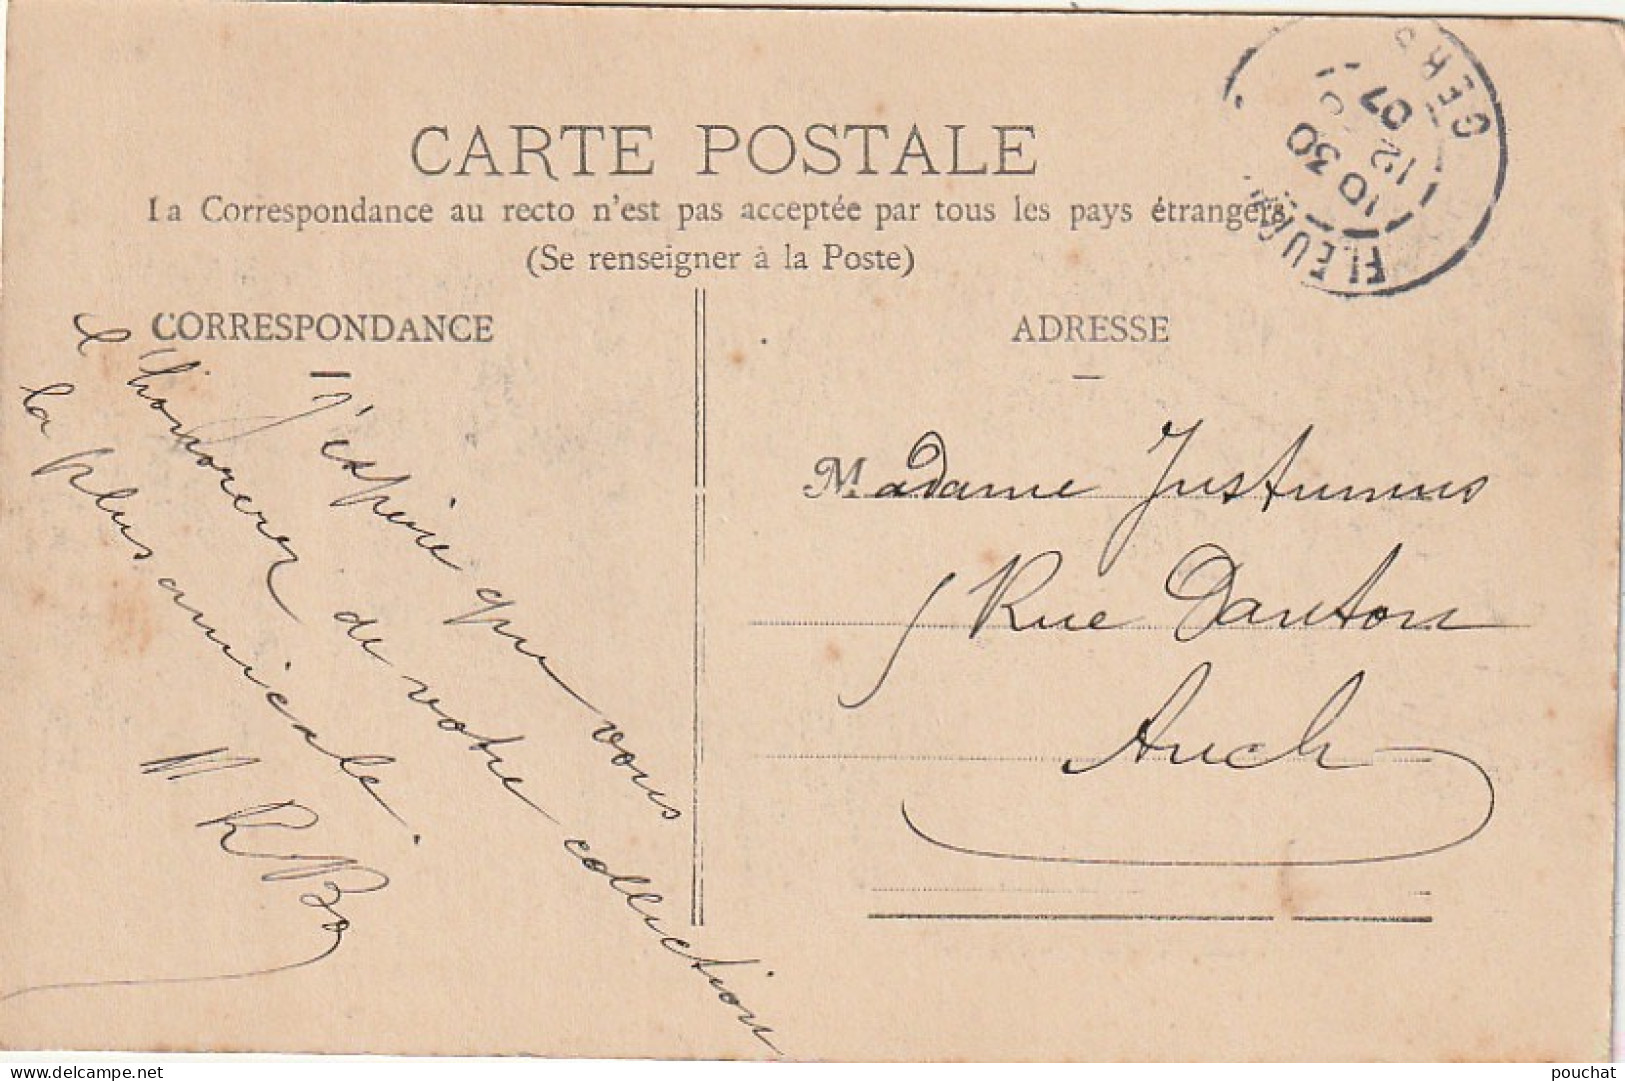 CARTE POSTALE
La Correspondance au recto n'est pas acceptée par tous les pays étrangers
(Se renseigner à la Poste)
CORRESPONDANCE
ADRESSE
J'espère que vous
l'honorerez de votre collection
la plus amicale.
M R Bo
Madame Justumus
5 Rue Danton
Auch
FLEURAN
GERS
10 30
12
07
delcampe.net
pouchat